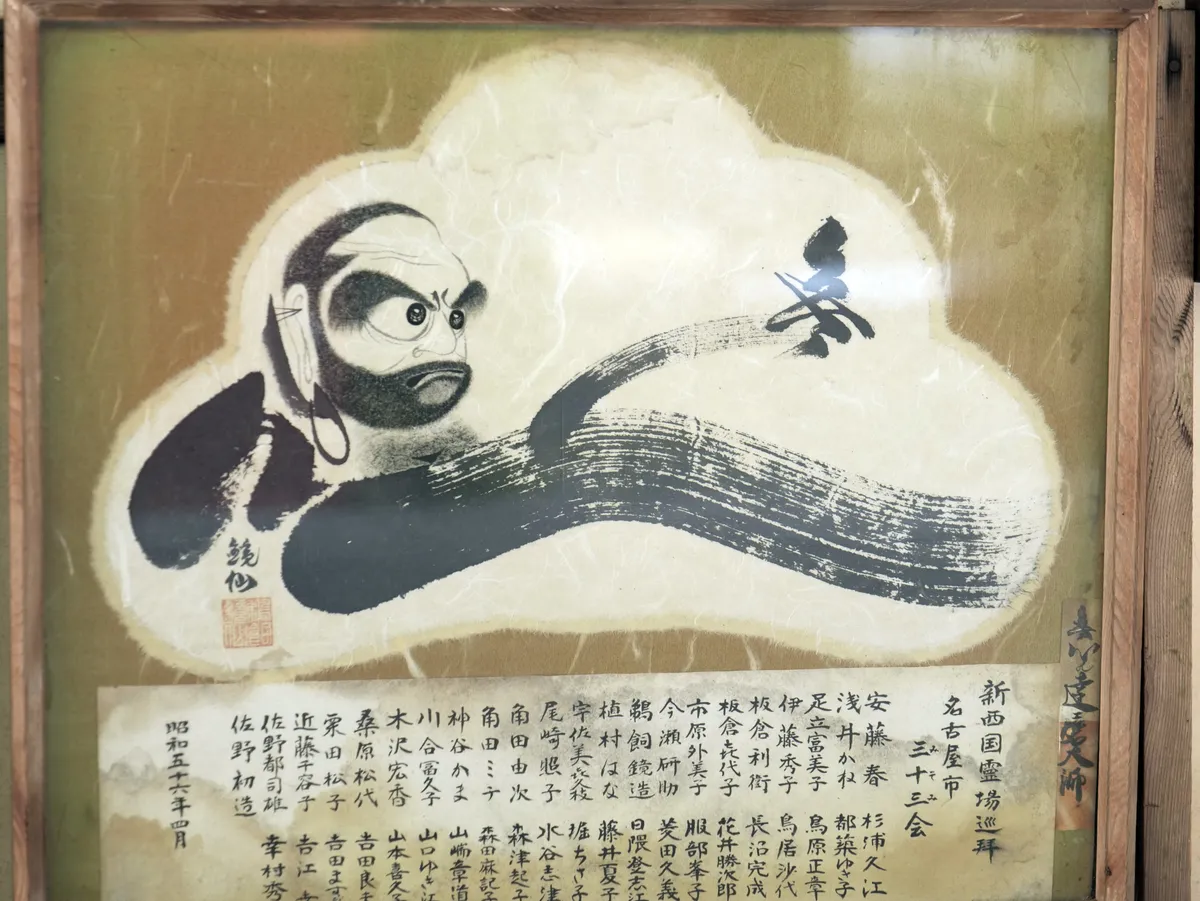 夢
鏡仙
新西国霊場巡拝
名古屋市
三十三会
みそみ
安藤春
杉浦久江
浅井かね
都築ゆき子
足立富美子
鳥原正章
伊藤秀子
鳥居沙代
板倉利衛
長沼完成
板倉㐂代子
花井勝次郎
市原外美子
服部峯子
今瀬研助
菱田久義
鵜飼鏡造
日隈登志江
植村はな
藤井夏子
宇佐美㐂久枝
堀ちさ子
尾崎照子
水谷志津
角田由次
森津起子
角田ミテ
森田麻記子
神谷かま
山端章道
川合富久子
山口ゆき江
木沢宏香
山本喜久子
桑原松代
吉田良
栗田松子
吉田ます
近藤千容子
吉江
佐野都司雄
幸村秀
佐野初造
昭和五十六年四月